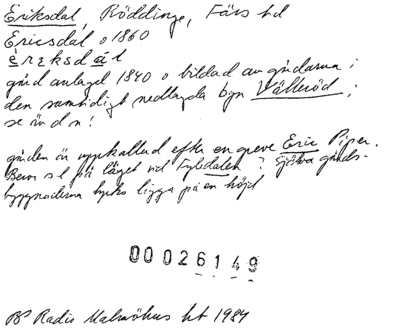 Eriksdal, Röddinge, Färs hd
Ericsdal o 1860
èreksdál
gård anlagd 1840 o bildad av gårdarna i
den samtidigt nedlagda byn Välleröd;
se ä d n!
gården är uppkallad efter en greve Eric Piper.
Beror sl på läget vid Fyledalen? Själva gårds-
byggnaderna tycks ligga på en höjd
00026149
Radio Malmöhus ht 1984